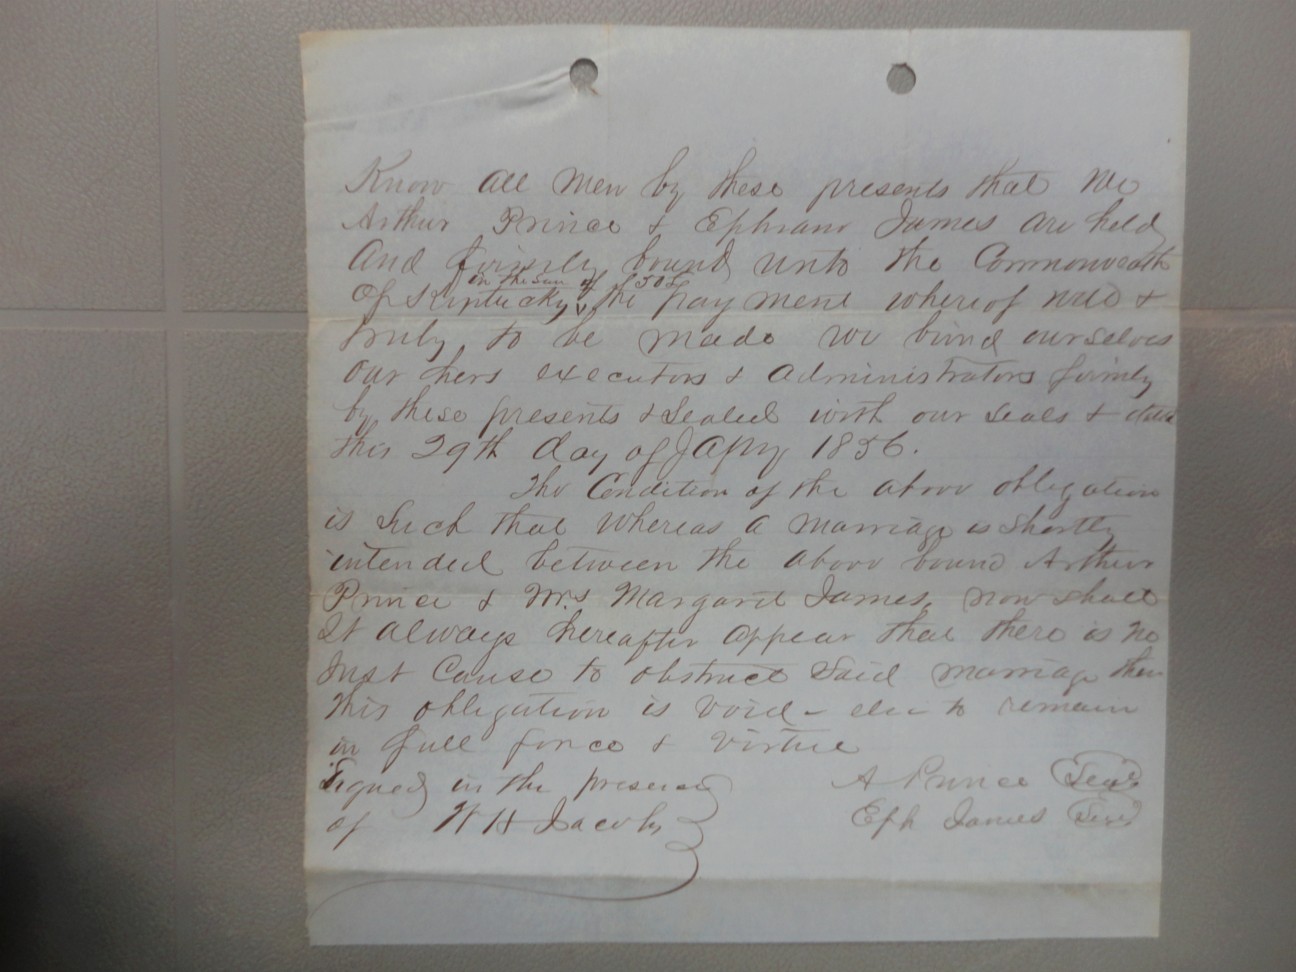 Know all men by these presents that We
Arthur Prince & Ephram James are held
And firmly bound unto the Commonwealth
in the sum of £50
Of Kentucky, the payment whereof well &
truly to be made we bind ourselves
our hers executors & administrators firmly
by these presents & sealed with our seals &
this 29th day of 1856.
The Condition of the above obligation
is Such that Whereas a marriage is Shortly
intended between the above bound Arthur
Prince & Mrs Margaret James, now shall
It always hereafter appear that there is no
Just Cause to obstruct Said marriage then
this obligation is void - else to remain
in full force & virtue
Signed in the presense A Prince Seal
of W H Jacobs Eph James Seal